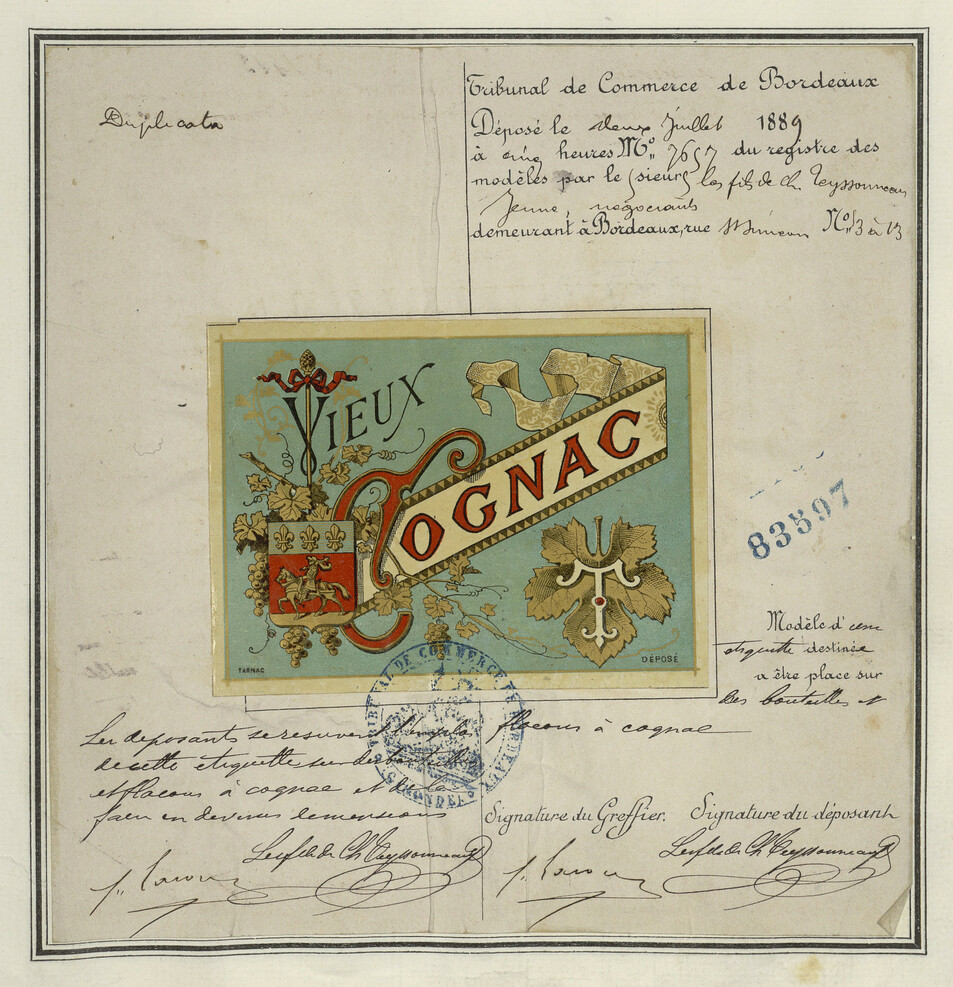 Duplicata
Tribunal de Commerce de Bordeaux
Déposé le deux Juillet 1889
à cinq heures Nº 7657 du registre des
modèles par le sieurs les fils de Ch. Teyssonneau
Jeune, négociants
demeurant à Bordeaux, rue Nº 3 à 13
VIEUX
COGNAC
T
TARNAC
DÉPOSÉ
83597
Modèle d'une
étiquette destinée
a être place sur
des bouteilles et
flacons à cognac
TRIBUNAL DE COMMERCE DE BORDEAUX
(GIRONDE)
Les deposants se reservent l'emploi
de cette étiquette sur des bouteilles
et flacons à cognac et de la
faire en diverses dimensions
Signature du Greffier. Signature du déposant
Les fils de Ch Teyssonneau Je
Les fils de Ch Teyssonneau Je